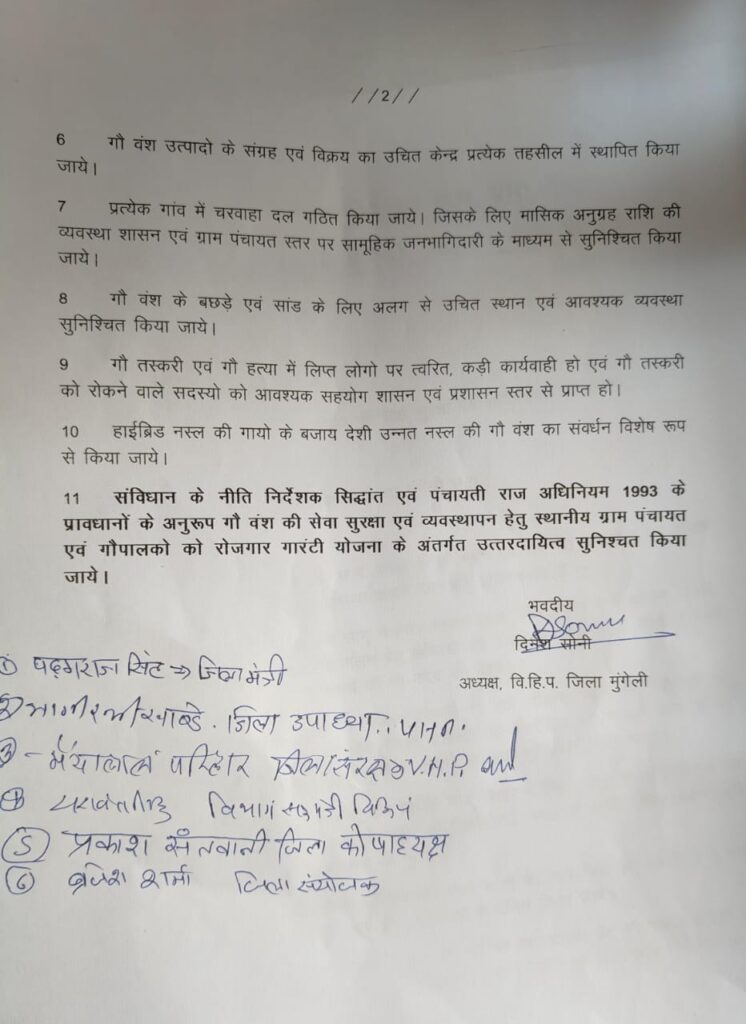 //2//
6 गौ वंश उत्पादो के संग्रह एवं विक्रय का उचित केन्द्र प्रत्येक तहसील में स्थापित किया
जाये।
7 प्रत्येक गांव में चरवाहा दल गठित किया जाये। जिसके लिए मासिक अनुग्रह राशि की
व्यवस्था शासन एवं ग्राम पंचायत स्तर पर सामूहिक जनभागिदारी के माध्यम से सुनिश्चित किया
जाये।
8 गौ वंश के बछड़े एवं सांड के लिए अलग से उचित स्थान एवं आवश्यक व्यवस्था
सुनिश्चित किया जाये।
9 गौ तस्करी एवं गौ हत्या में लिप्त लोगो पर त्वरित, कड़ी कार्यवाही हो एवं गौ तस्करी
को रोकने वाले सदस्यो को आवश्यक सहयोग शासन एवं प्रशासन स्तर से प्राप्त हो।
10 हाईब्रिड नस्ल की गायो के बजाय देशी उन्नत नस्ल की गौ वंश का संवर्धन विशेष रूप
से किया जाये।
11 संविधान के नीति निर्देशक सिद्धांत एवं पंचायती राज अधिनियम 1993 के
प्रावधानों के अनुरूप गौ वंश की सेवा सुरक्षा एवं व्यवस्थापन हेतु स्थानीय ग्राम पंचायत
एवं गौपालको को रोजगार गारंटी योजना के अंतर्गत उत्तरदायित्व सुनिश्चत किया
जाये।
भवदीय
दिनेश सोनी
अध्यक्ष, वि.हि.प. जिला मुंगेली
① सिंह → जिला मंत्री
② जिला
③ - परिहार V.H.P.
④ विभाग
⑤ प्रकाश जिला कोषाध्यक्ष
⑥ शर्मा जिला संयोजक